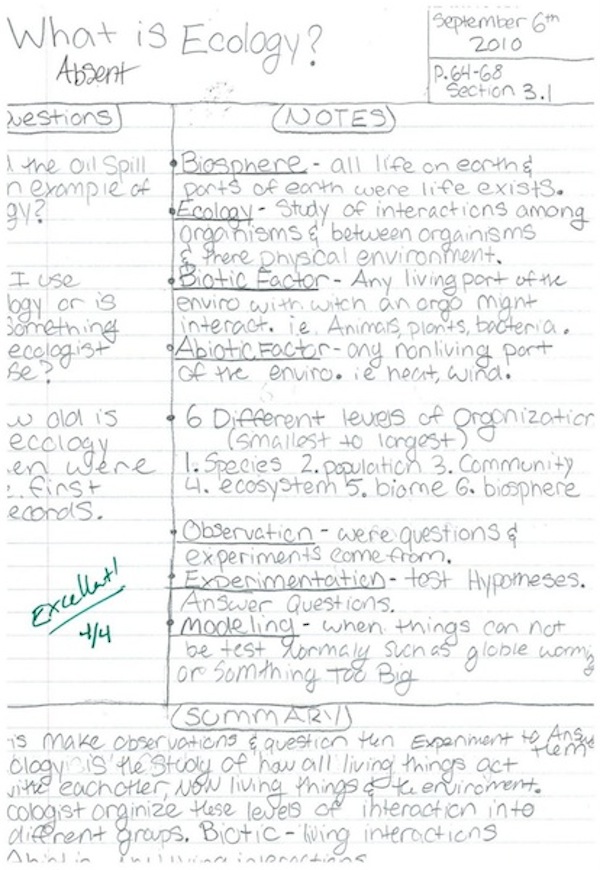 What is Ecology?
Absent
September 6th
2010
p.64-68
Section 3.1
uestions
the Oil Spill
n example of
gy?
I use
logy or is
something
ecologist
se?
w old is
ecology
en were
first
ecords.
Excellent!
4/4
(NOTES)
• Biosphere - all life on earth &
parts of earth were life exists.
• Ecology - Study of interactions among
organisms & between orgainisms
& there physical environment.
• Biotic Factor - Any living part of the
enviro with witch an orgo might
interact. i.e. Animals, plants, bacteria.
• Abiotic Factor - any nonliving part
of the enviro. ie heat, wind.
• 6 Different levels of Organization
(smallest to largest)
1. Species 2. population 3. Community
4. ecosystem 5. biome 6. biosphere
• Observation - were questions &
experiments come from.
• Experimentaition - test Hypotheses.
Answer Questions.
• Modeling - when things can not
be test Normaly Such as globle worming
or Somthing Too Big
(SUMMARY)
is Make observations & question then Experiment to Answe
them
ology is the Study of how all living things act
with eachother, NON living things & the enviroment.
cologist orginize these levels of interaction into
different groups. Biotic - living interactions